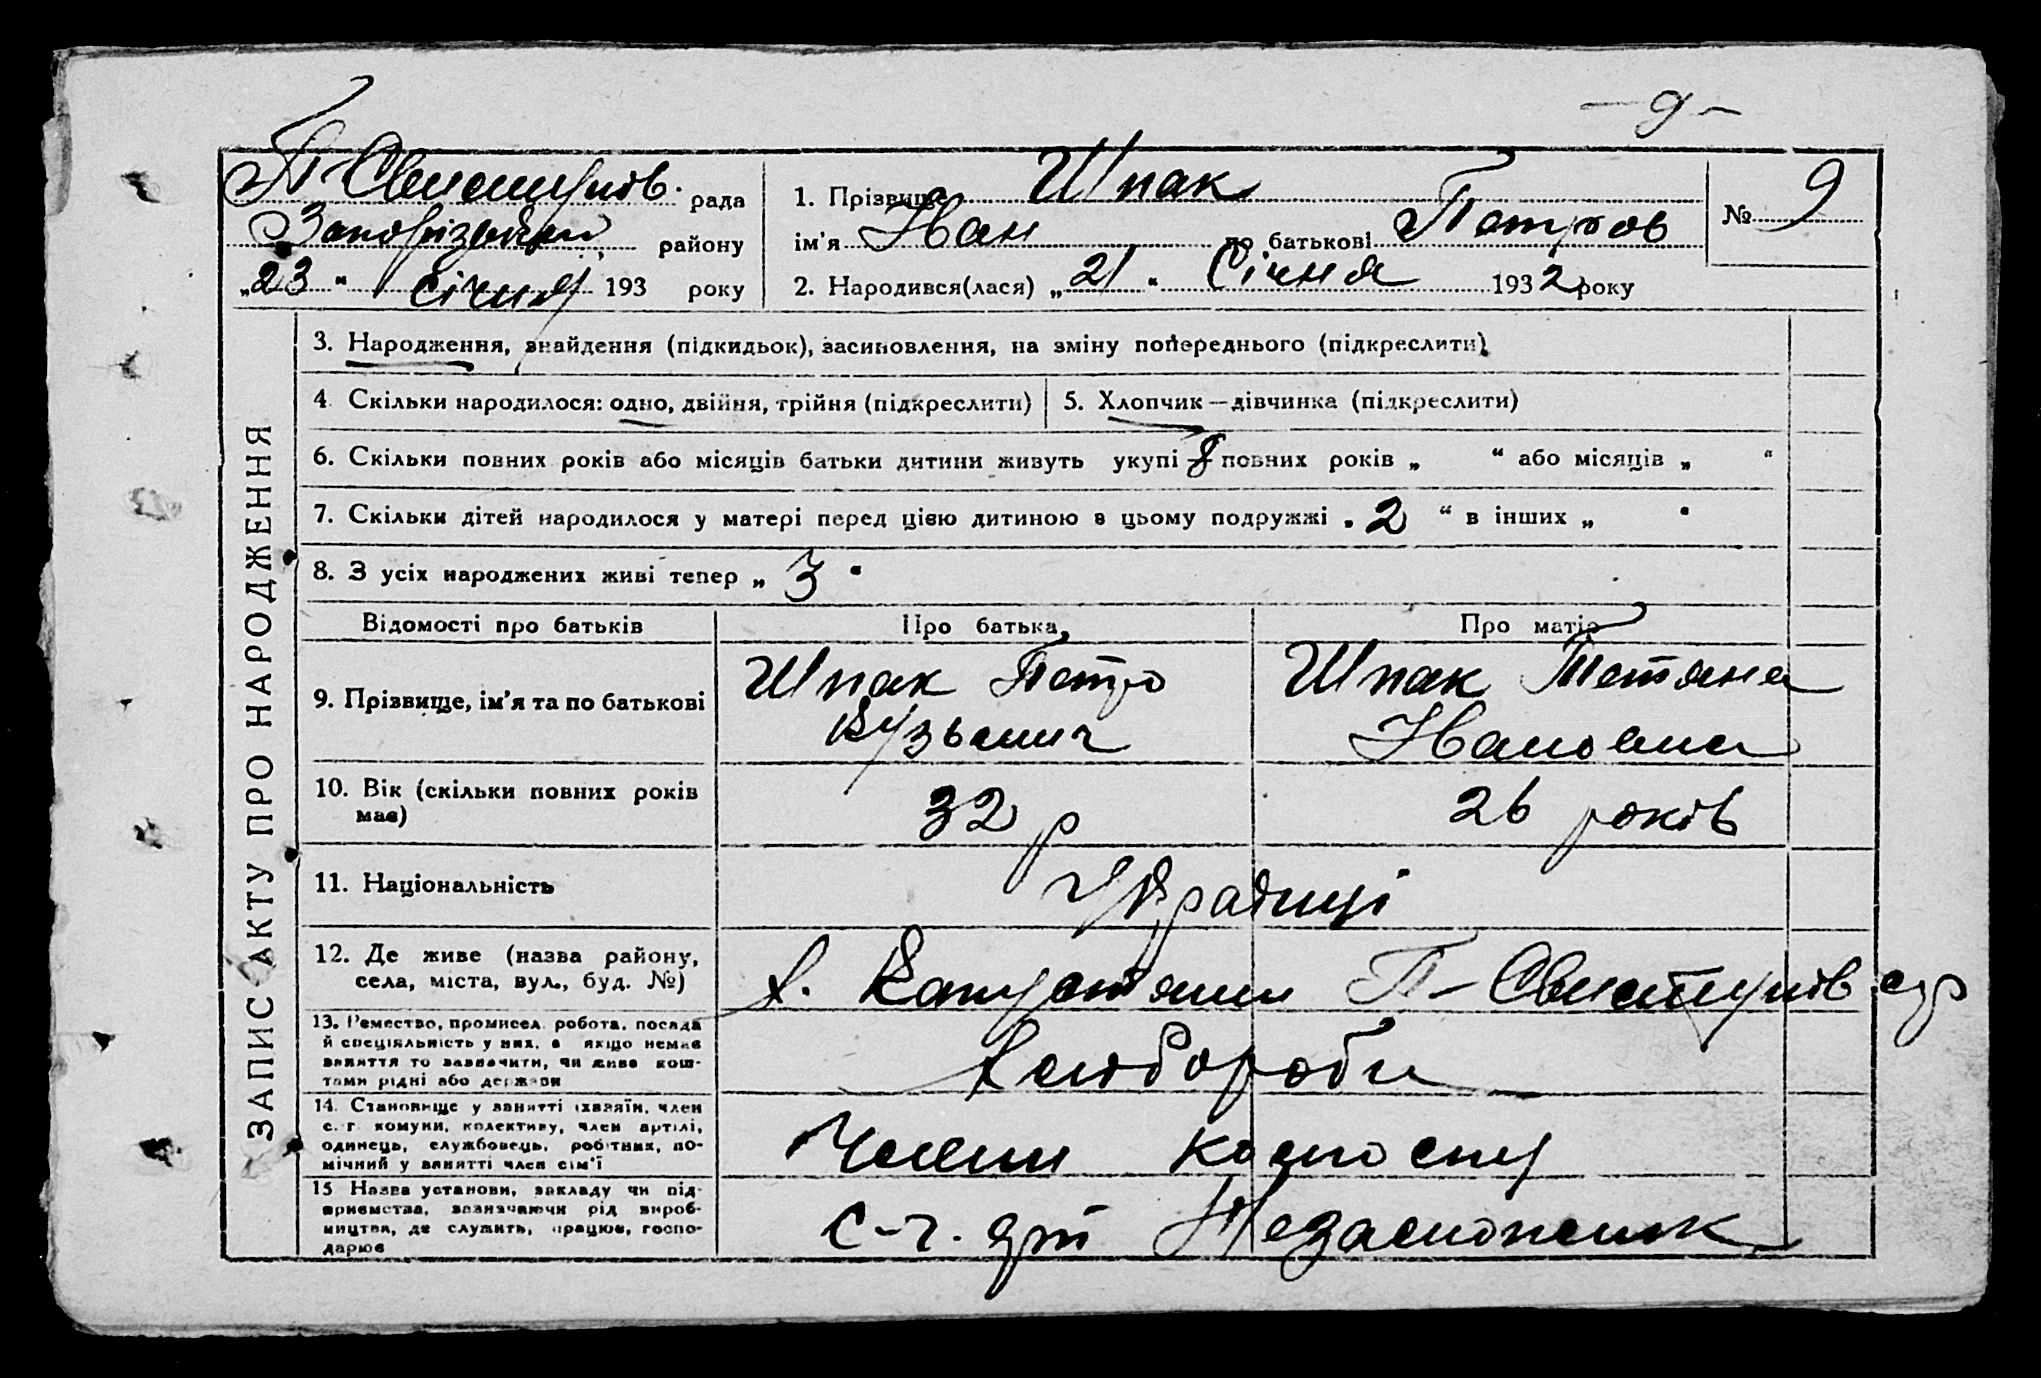 — 9 —
П-Свистунів. рада
Запорізький району
„23“ січня 193 року
1. Прізвище Шпак
ім'я Іван по батькові Петров
№ 9
2. Народився(лася) „21“ Січня 1932 року
ЗАПИС АКТУ ПРО НАРОДЖЕННЯ
3. Народження, знайдення (підкидьок), засиновлення, на зміну попереднього (підкреслити)
4. Скільки народилося: одно, двійня, трійня (підкреслити)
5. Хлопчик — дівчинка (підкреслити)
6. Скільки повних років або місяців батьки дитини живуть укупі 8 повних років „ “ або місяців „ “
7. Скільки дітей народилося у матері перед цією дитиною в цьому подружжі „ 2 “ в інших „ “
8. З усіх народжених живі тепер „ 3 “
Відомості про батьків Про батька Про матір
9. Прізвище, ім'я та по батькові
Шпак Петро
Кузьмич
Шпак Тетяна
Івановна
10. Вік (скільки повних років
має)
32 р
26 років
11. Національність
Українці
12. Де живе (назва району,
села, міста, вул., буд. №)
х. Капустяний П-Свистунів с/р
13. Ремество, промисел, робота, посада
й спеціяльність у них, а якщо немає
заняття то зазначити, чи живе кош-
тами рідні або держави
Хлібороби
14. Становище у занятті (хазяїн, член
с.-г. комуни, колективу, член артілі,
одинець, службовець, робітник, по-
мічний у занятті член сім'ї
Члени колгоспу
15 Назва установи, закладу чи під-
приємства, зазначаючи рід вироб-
ництва, де служить, працює, госпо-
дарює
С-г. арт Незаможник